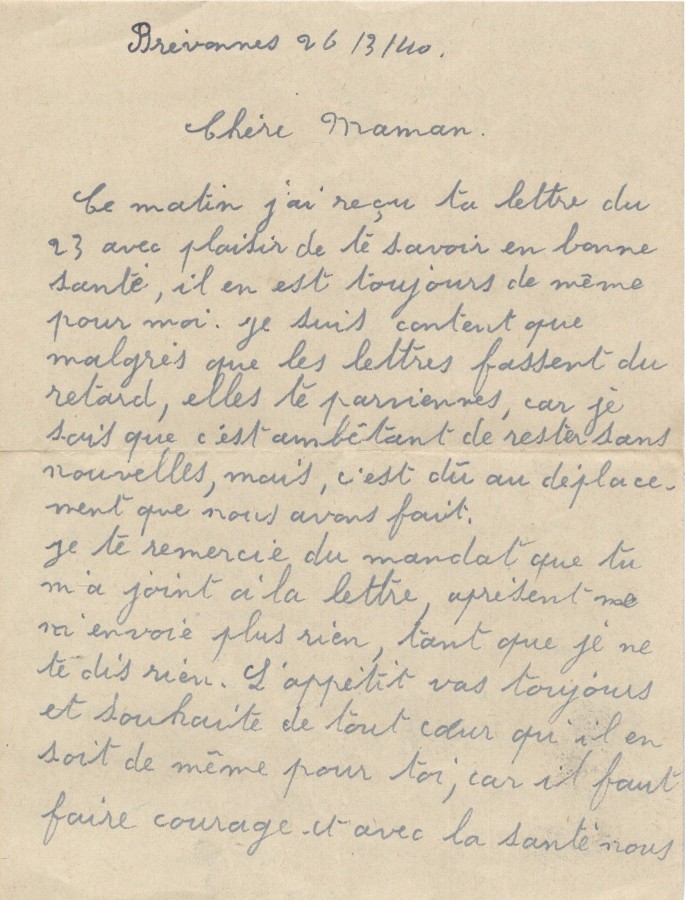 Brévonnes 26/3/40.
Chère Maman.
Ce matin j'ai reçu ta lettre du
23 avec plaisir de te savoir en bonne
santé, il en est toujours de même
pour moi. je suis content que
malgrés que les lettres fassent du
retard, elles te parviennes, car je
sais que c'est ambêtant de rester sans
nouvelles, mais, c'est dû au déplace-
ment que nous avons fait.
je te remercie du mandat que tu
m'a joint à la lettre, aprésent me
m'envoie plus rien, tant que je ne
te dis rien. L'appétit vas toujours
et souhaite de tout cœur qu'il en
soit de même pour toi, car il faut
faire courage et avec la santé nous